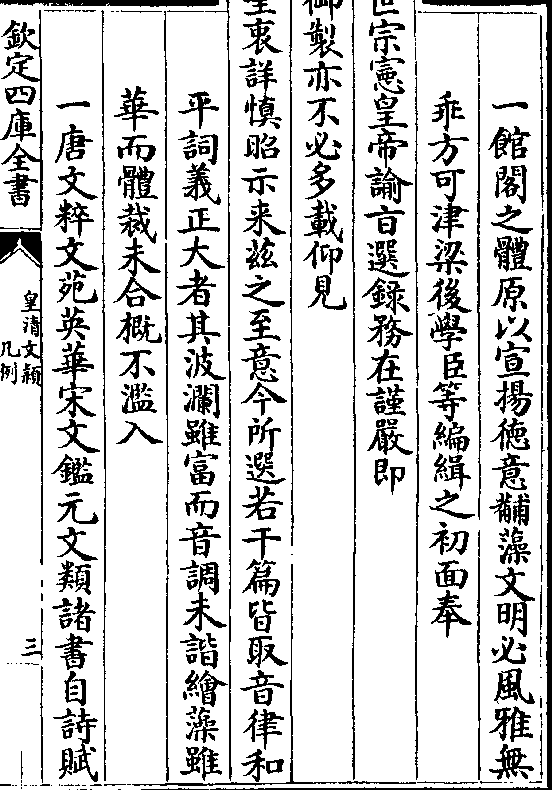 一館閣之體原以宣揚徳意黼藻文明必風雅無
乖方可津梁後學臣等編緝之初面奉
世宗憲皇帝諭㫖選録務在謹嚴即
御製亦不必多載仰見
聖衷詳慎昭示来兹之至意今所選若干篇皆取音律和
平詞義正大者其波瀾雖富而音調未諧繪藻雖
華而體裁未合概不濫入
一唐文粹文苑英華宋文鑑元文類諸書自詩賦
欽定四庫全書
皇清文穎
凡例
三